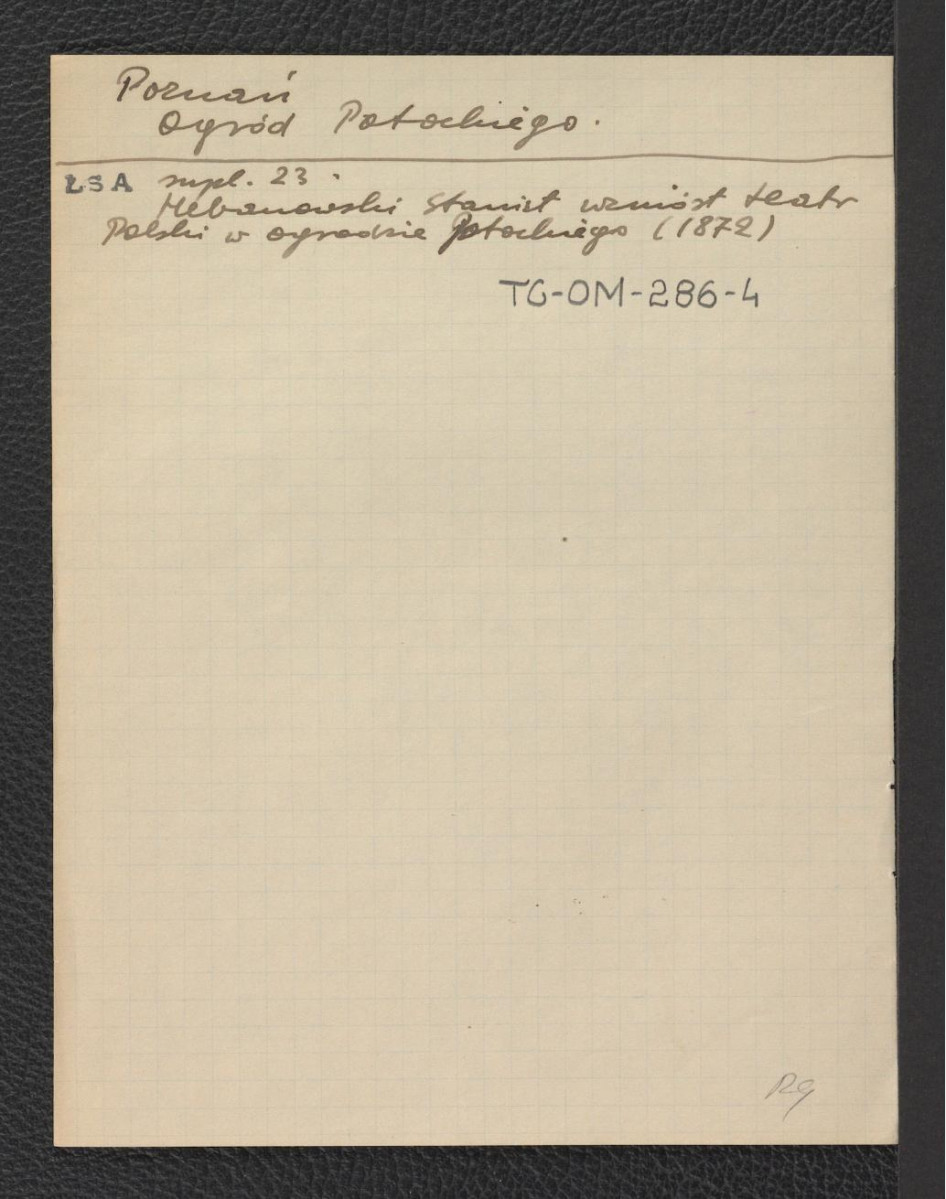 Poznań
Ogród Potockiego.
ŁSA supl. 23.
Hebanowski Stanisł wzniósł teatr
Polski w ogrodzie Potockiego (1872)
TG-OM-286-4
Rg